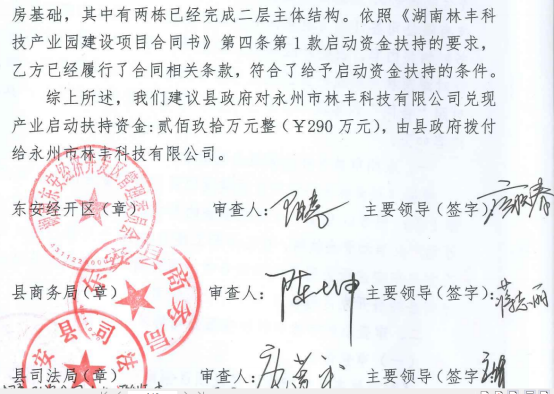 房基础，其中有两栋已经完成二层主体结构。依照《湖南林丰科
技产业园建设项目合同书》第四条第1款启动资金扶持的要求，
乙方已经履行了合同相关条款，符合了给予启动资金扶持的条件。
综上所述，我们建议县政府对永州市林丰科技有限公司兑现
产业启动扶持资金:贰佰玖拾万元整（￥290万元），由县政府拨付
给永州市林丰科技有限公司。
东安经开区（章） 审查人： 主要领导（签字）:
县商务局（章） 审查人： 陈 坤 主要领导（签字）:
县司法局（章） 审查人： 主要领导（签字）:
东安经济开发区管理委员会
东安县商务局
安县司法